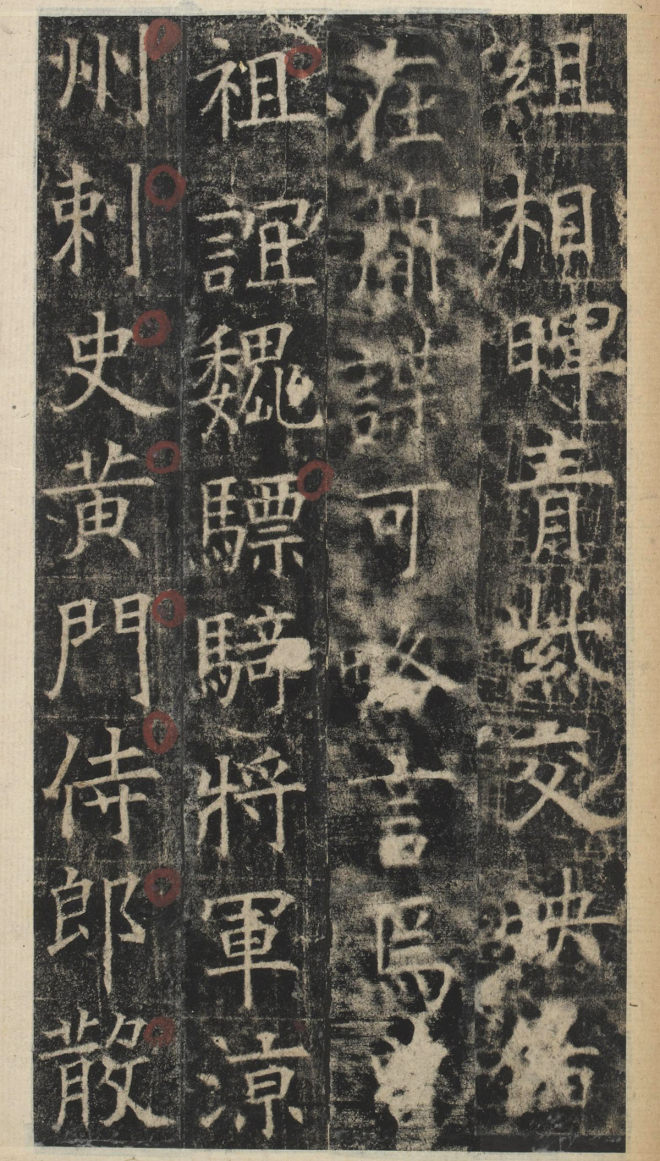 組相暉青紫交映
在簡諜可略言焉曾
祖誼魏驃騎將軍涼
州刺史黃門侍郎散